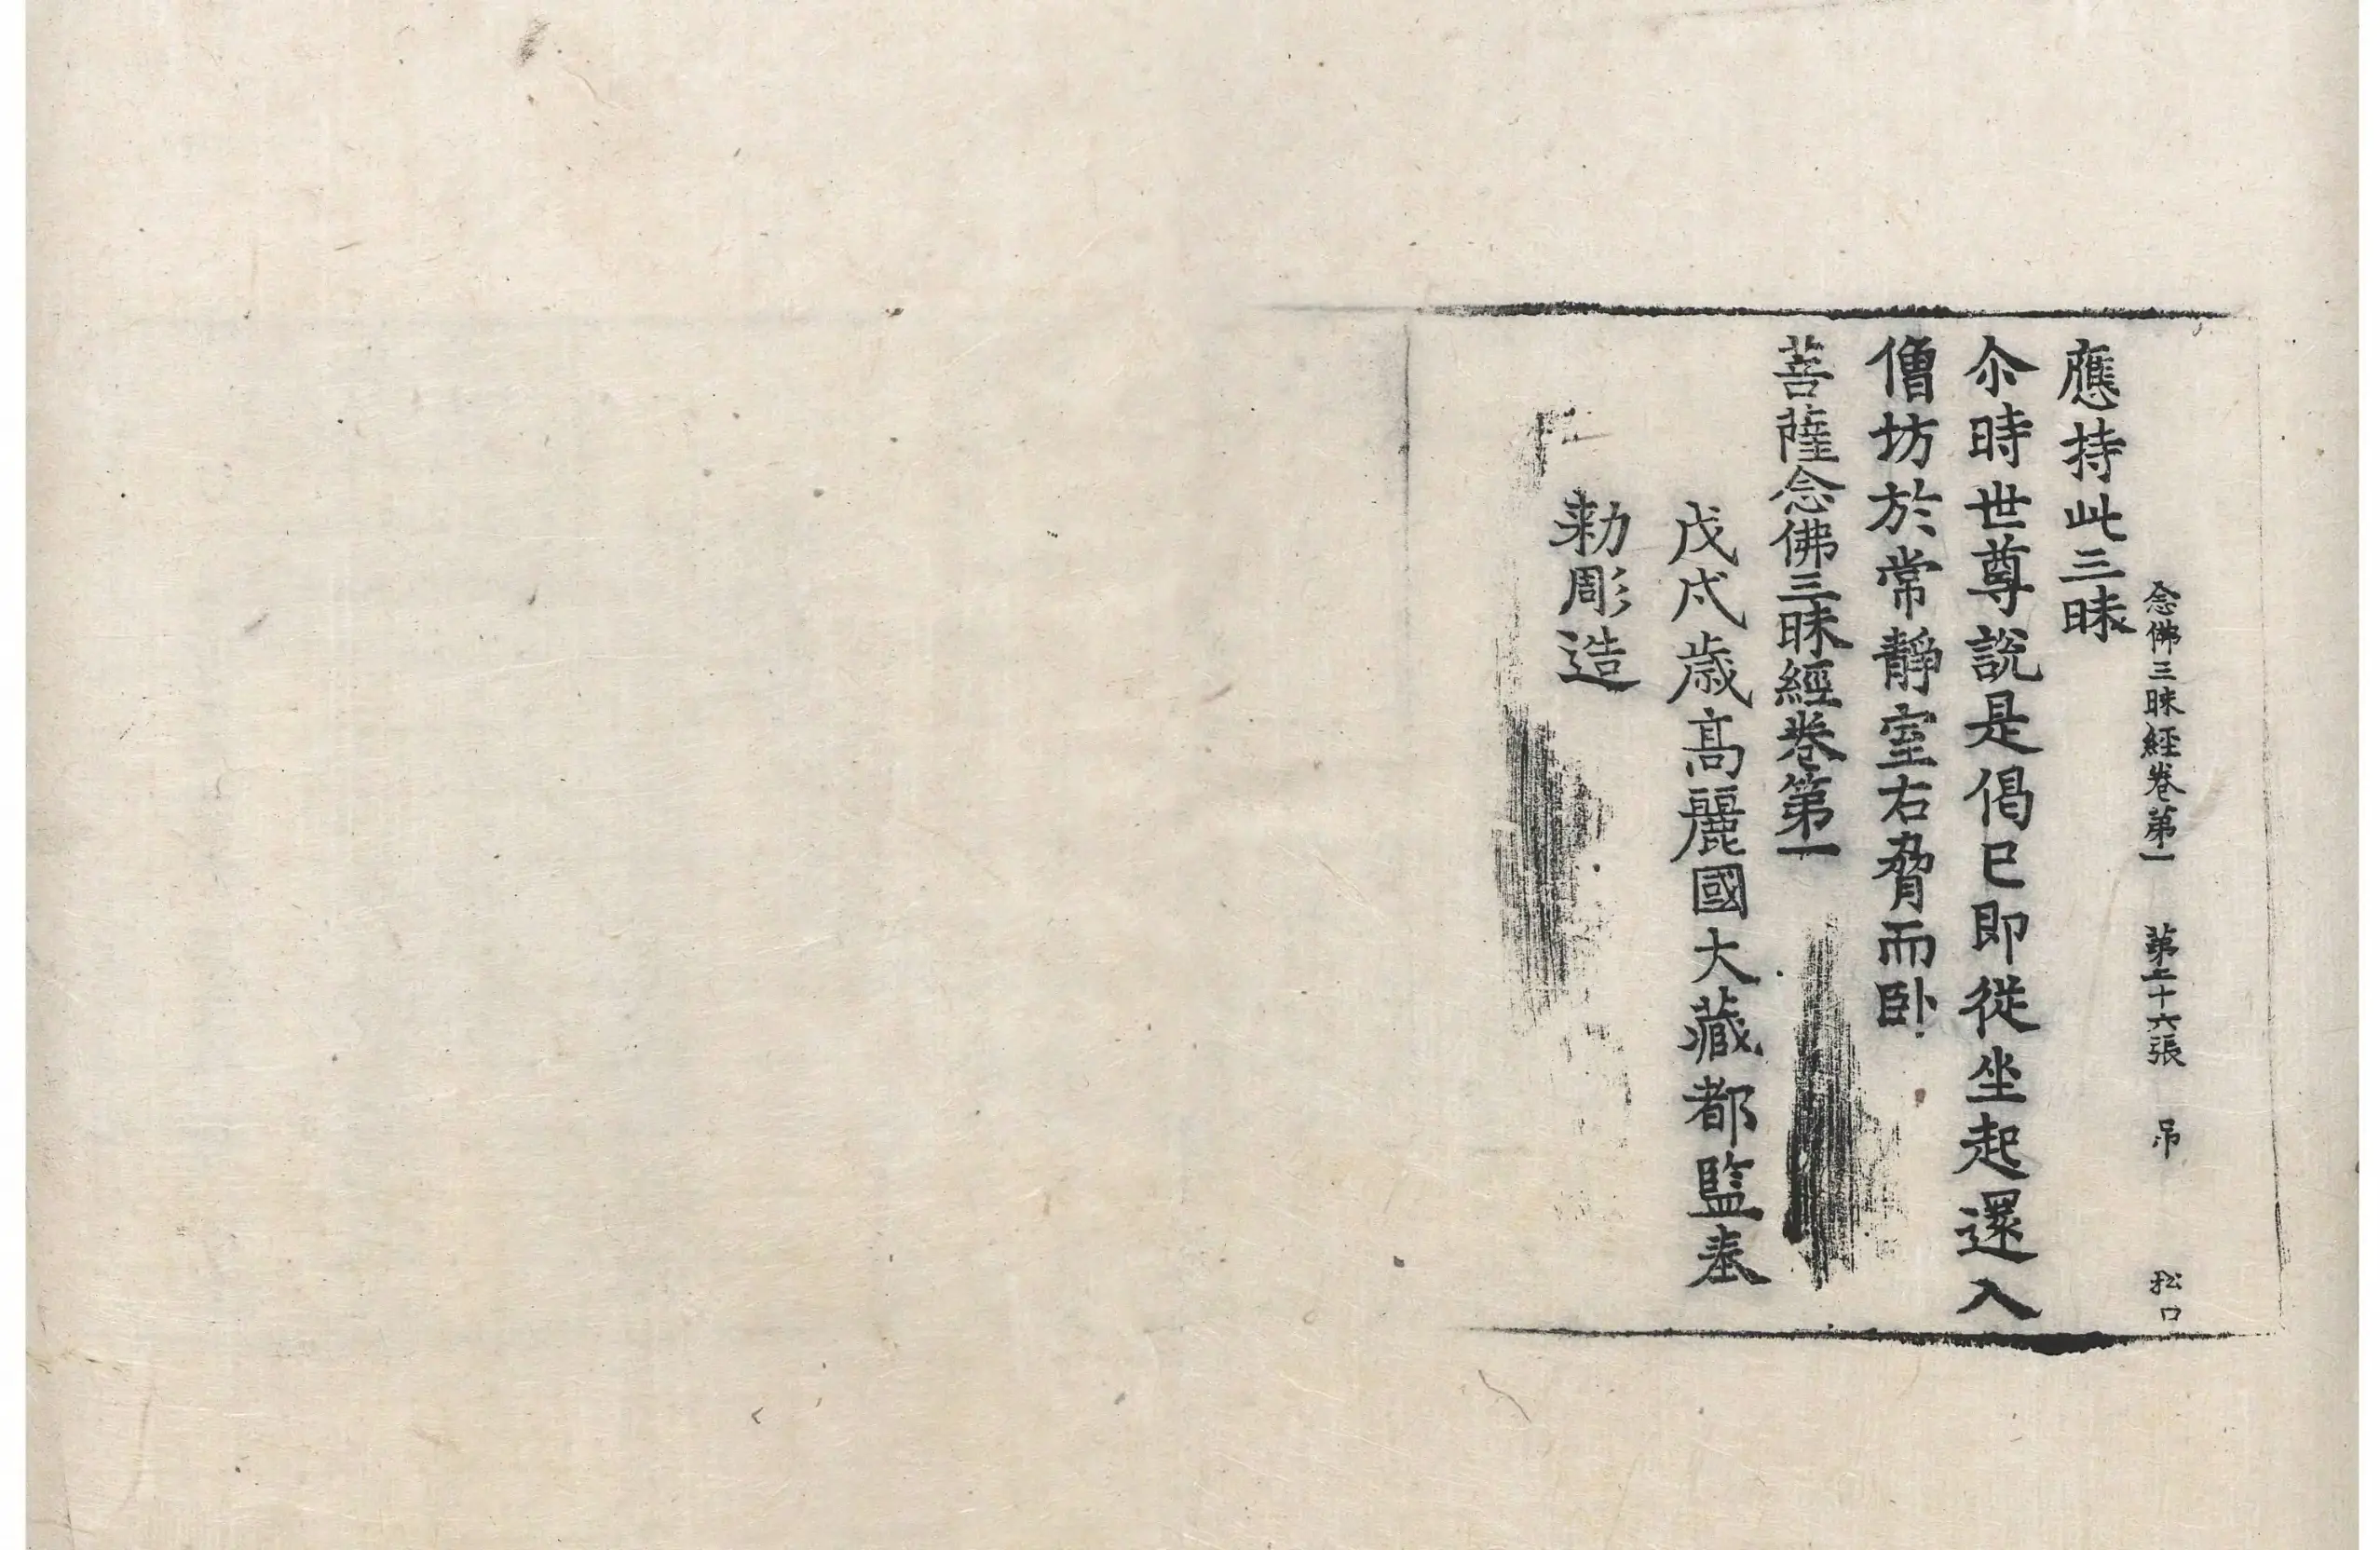 念佛三昧經卷第一 第二十六張 吊 松口
應持此三昧
尒時世尊說是偈已即從坐起還入
僧坊於常靜室右脅而卧
菩薩念佛三昧經卷第一
戊戌歲高麗國大藏都監奉
勑彫造